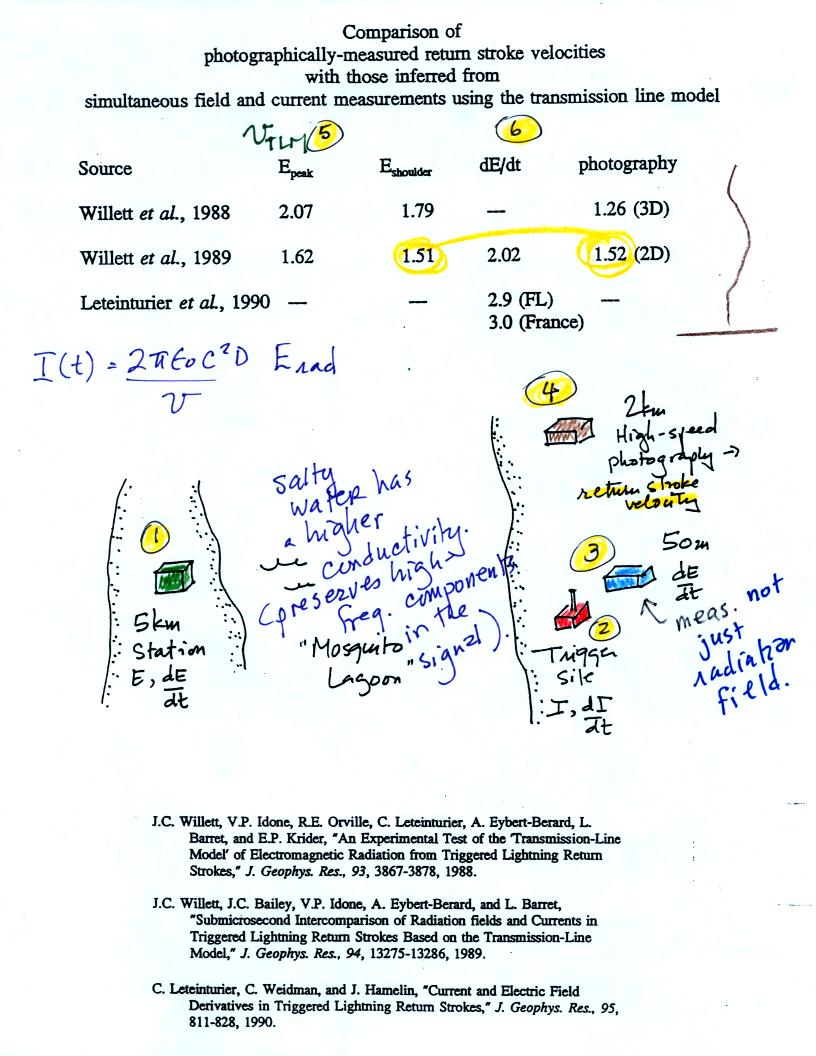 Comparison of
photographically-measured return stroke velocities
with those inferred from
simultaneous field and current measurements using the transmission line model
VTLM 5 6
Source Epeak Eshoulder dE/dt photography
Willett et al., 1988 2.07 1.79 — 1.26 (3D)
Willett et al., 1989 1.62 1.51 2.02 1.52 (2D)
Leteinturier et al., 1990 — — 2.9 (FL) —
3.0 (France)
I(t) = 2πε0c²D Erad
v
4
2km
High-speed
photography →
return stroke
velocity
salty
water has
a higher
conductivity.
(preserves high
freq. components
in the
signal).
1
5km
Station
E, dE
dt
"Mosquito
Lagoon"
3
50m
dE
dt
2
Trigger
site
I, dI
dt
meas. not
just
radiation
field.
J.C. Willett, V.P. Idone, R.E. Orville, C. Leteinturier, A. Eybert-Berard, L.
Barret, and E.P. Krider, "An Experimental Test of the 'Transmission-Line
Model' of Electromagnetic Radiation from Triggered Lightning Return
Strokes," J. Geophys. Res., 93, 3867-3878, 1988.
J.C. Willett, J.C. Bailey, V.P. Idone, A. Eybert-Berard, and L. Barret,
"Submicrosecond Intercomparison of Radiation fields and Currents in
Triggered Lightning Return Strokes Based on the Transmission-Line
Model," J. Geophys. Res., 94, 13275-13286, 1989.
C. Leteinturier, C. Weidman, and J. Hamelin, "Current and Electric Field
Derivatives in Triggered Lightning Return Strokes," J. Geophys. Res., 95,
811-828, 1990.